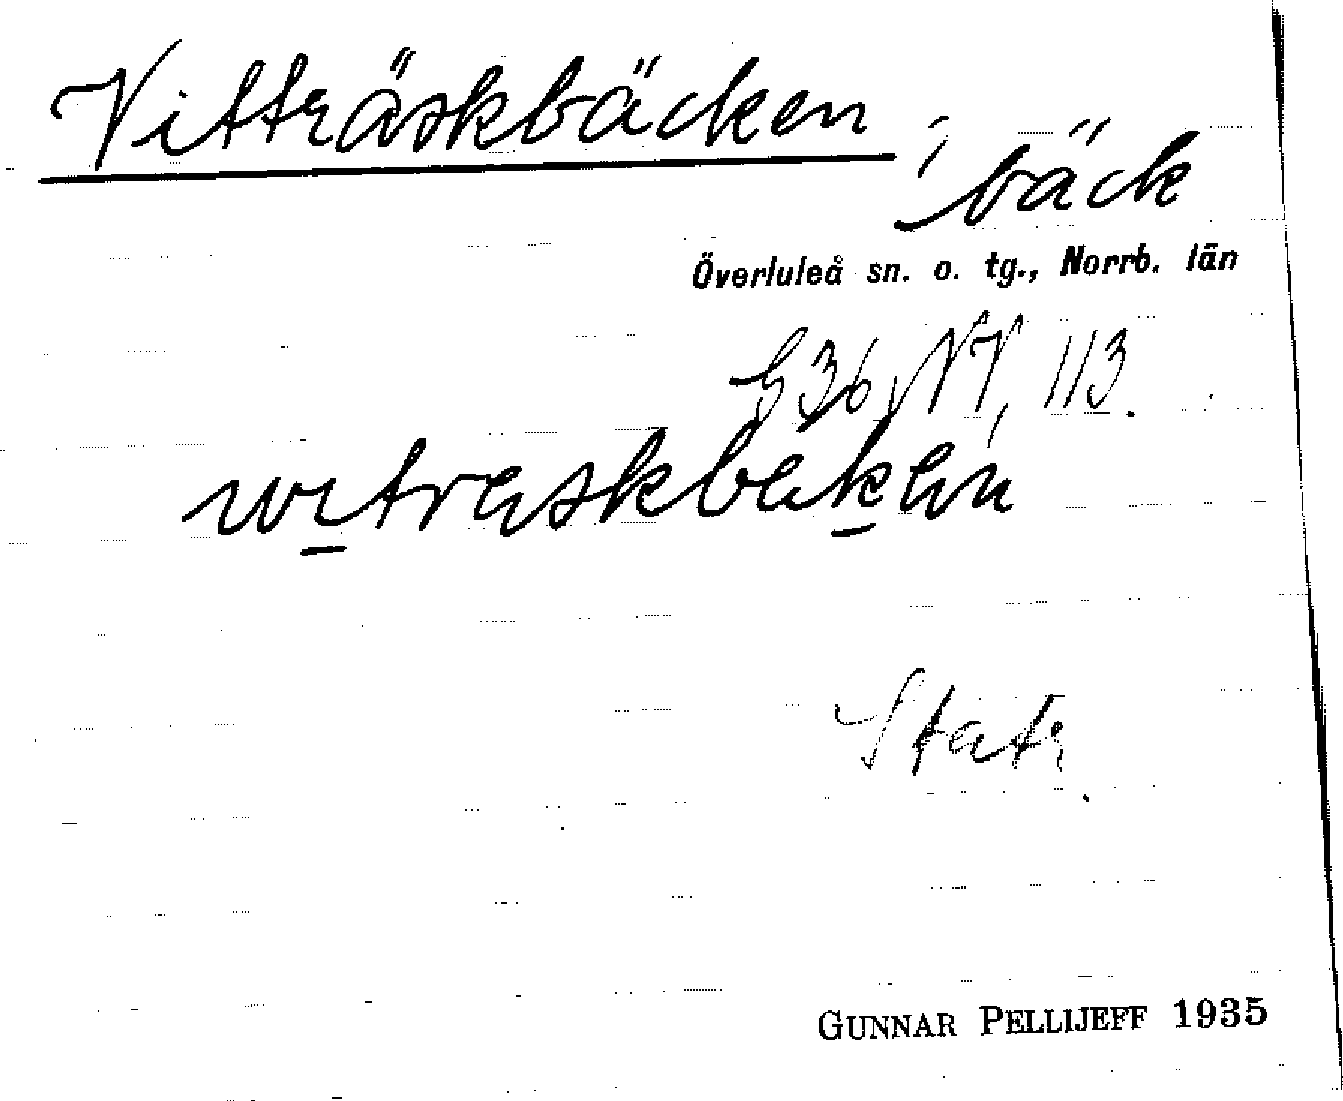 Vitträskbäcken,
bäck
Överluleå sn. o. tg., Norrb. län
G36, NV, 113.
GUNNAR PELLIJEFF 1935